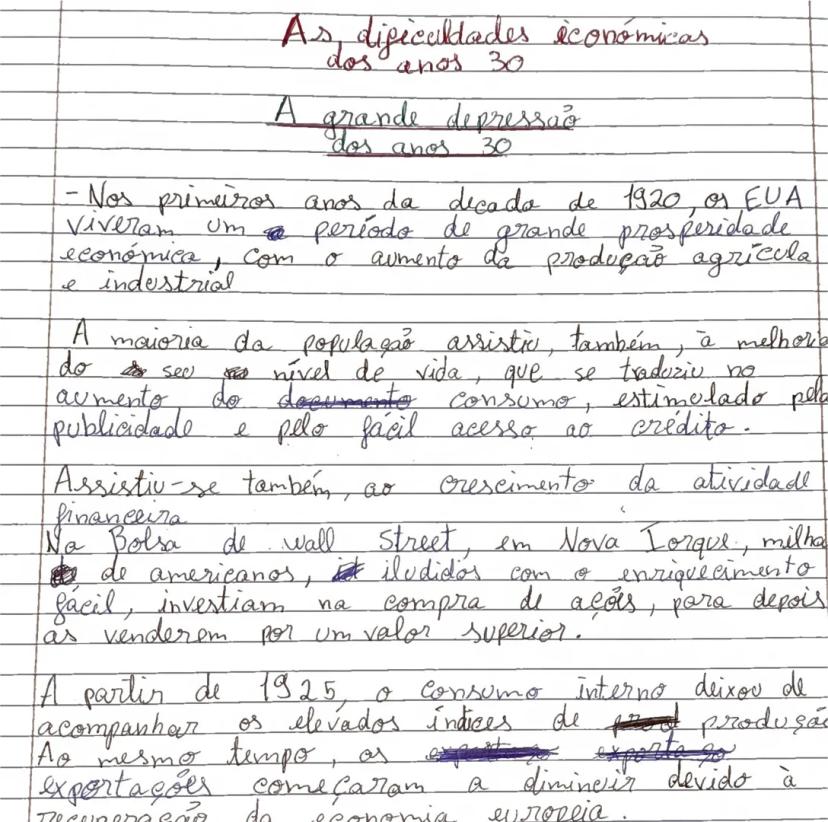 As dificuldades económicas
dos anos 30
A grande depressão
dos anos 30
- Nos primeiros anos da decada de 1920, os EUA
viveram um período de grande prosperidade
económica, com o aumento da produção agrícola
e industrial
A maioria da população assistiu, também, à melhoria
do seu nível de vida, que se traduziu no
aumento do documento consumo, estimulado pela
publicidade e pelo fácil acesso ao crédito.
Assistiu-se também, ao crescimento da atividade
financeira
Na Bolsa de wall Street, em Nova Iorque, milha
de americanos, iludidos com o enriquecimento
fácil, investiam na compra de ações, para depois
as venderem por um valor superior.
A partir de 1925, o consumo interno deixou de
acompanhar os elevados índices de prod produção
Ao mesmo tempo, as exportaço exportaço
exportações começaram a diminuir devido à
recuperação da economia europeia.